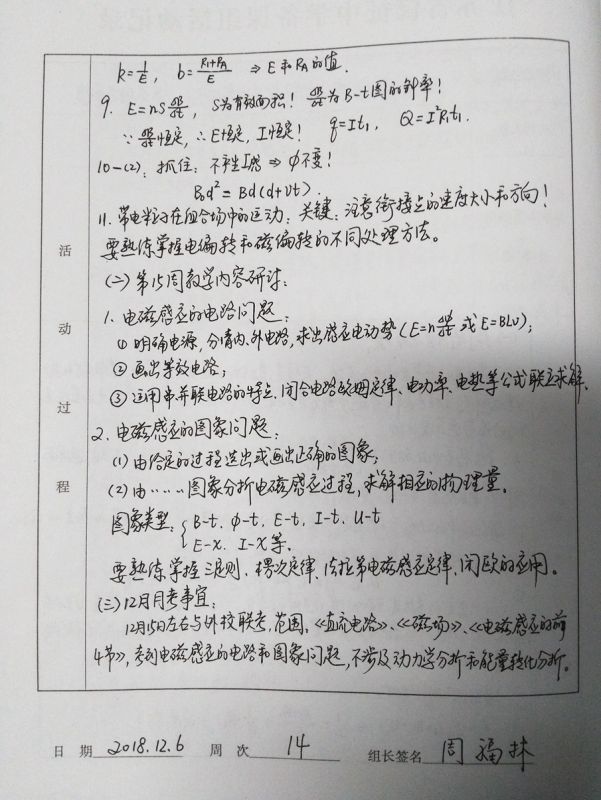 k=1/E, b=(R1+RA)/E ⇒ E和RA的值.
9. E=nSΔB/Δt, S为有效面积! ΔB/Δt为B-t图的斜率!
∵ ΔB/Δt恒定, ∴E恒定, I恒定! q=It1, Q=I²R1t1.
10-(2): 抓住: 不产生I感 ⇒ Φ不变!
B0d²=Bd(d+vt).
11. 带电粒子在组合场中的运动: 关键: 注意衔接点的速度大小和方向!
要熟练掌握电偏转和磁偏转的不同处理方法。
(二)第15周教学内容研讨:
1. 电磁感应的电路问题:
① 明确电源, 分清内、外电路, 求出感应电动势(E=nΔΦ/Δt 或 E=BLv);
② 画出等效电路;
③ 运用串并联电路的特点、闭合电路欧姆定律、电功率、电热等公式联立求解.
2. 电磁感应的图象问题:
(1) 由给定的过程选出或画出正确的图象;
(2) 由……图象分析电磁感应过程, 求解相应的物理量。
图象类型: { B-t, Φ-t, E-t, I-t, U-t
E-x, I-x等.
要熟练掌握三定则、楞次定律、法拉第电磁感应定律、闭欧的应用。
(三)12月月考事宜:
12月15日左右与外校联考, 范围,《直流电路》、《磁场》、《电磁感应的前
4节》, 考到电磁感应的电路和图象问题, 不涉及动力学分析和能量转化分析。
活
动
过
程
日 期 2018.12.6 周 次 14 组长签名 周福林